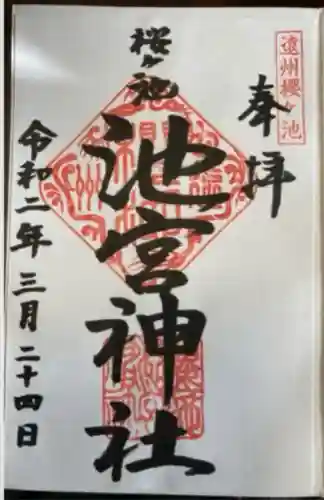 遠州櫻ヶ池
奉拝
桜ヶ池
池宮神社
令和二年三月二十四日